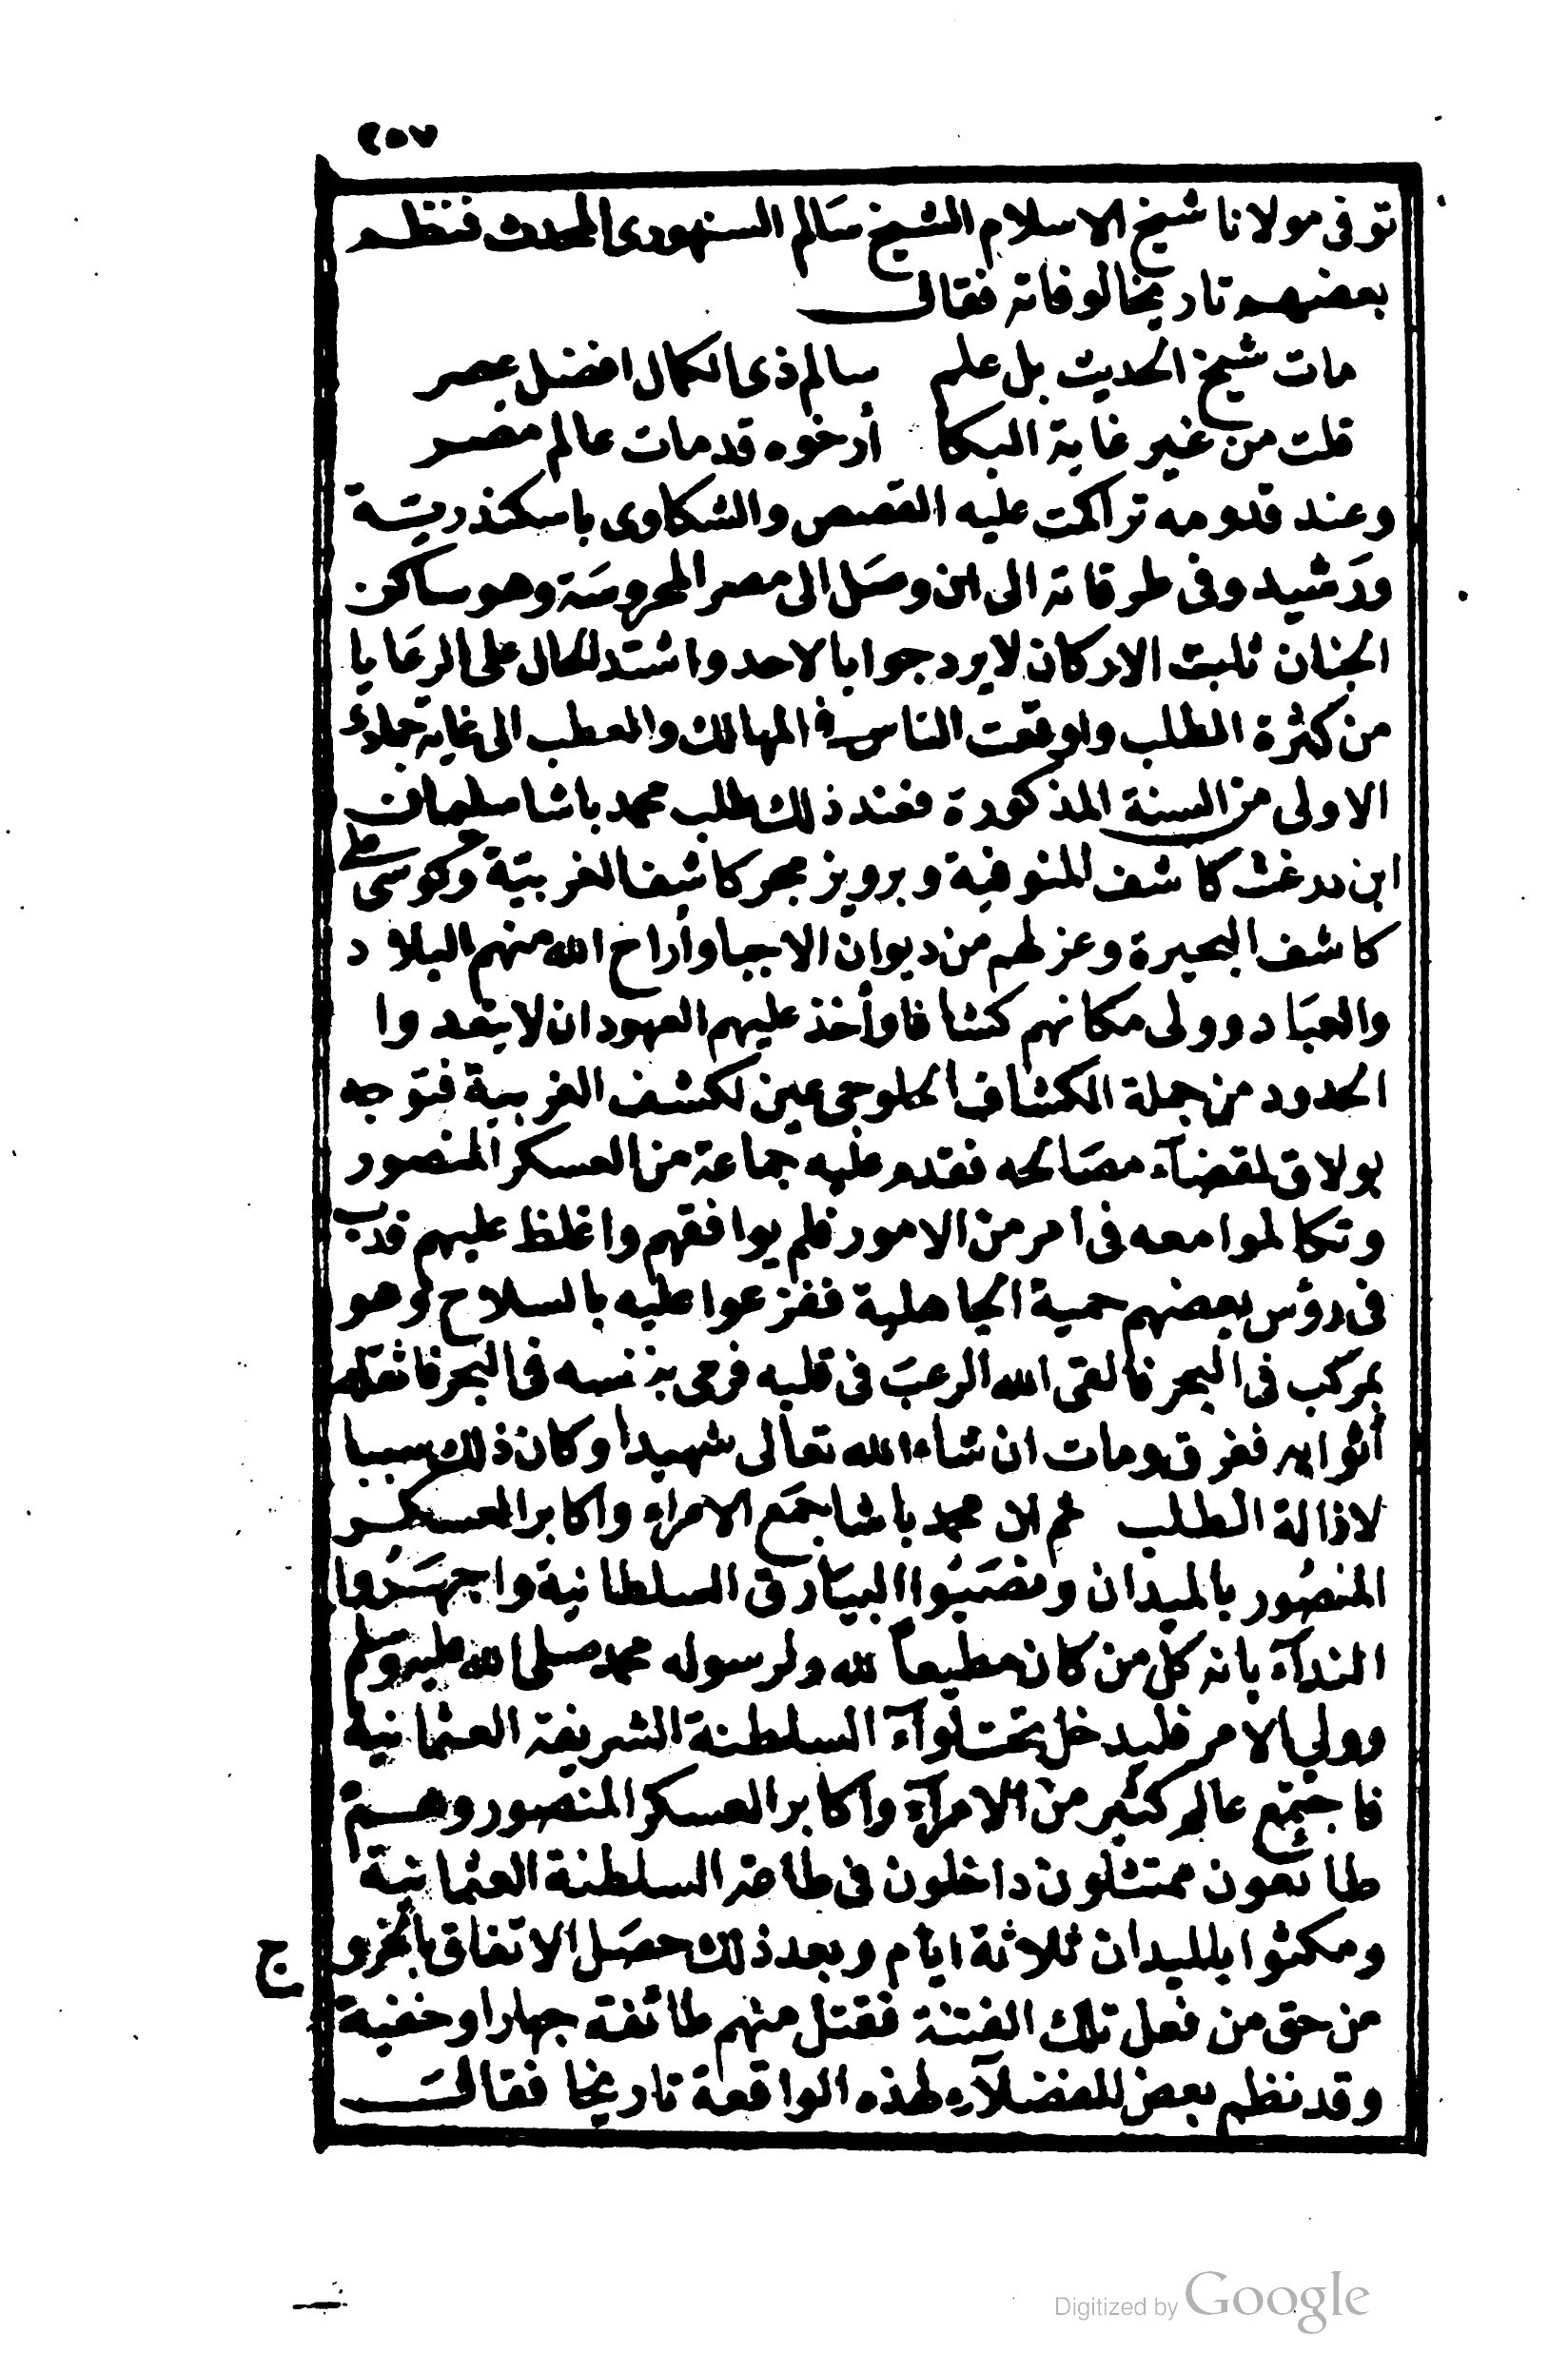 ٢٥٧
توفى مولانا شيخ الاسلام الشيخ سَالم السنهورى المحدث فنظم
بعضهم تاريخا لوفاته فقال
مات شيخ الحديث بل علم    سالم ذى الكمال افضل عصر
قلت من غير غاية البكا    أرخوه قد مات عالم مصر
وعند قدومه تراكمت عليه القصص والشكاوى باسكندرية
ورَشيد وفى طرقاته الى ان وصَل الى مصر المحروسَة وهو ساكن
الجنان ثابت الاركان لا يرد جوابا لاحد واشتد الحال على الرعَايا
من كثرة الطلب واوقعت الناس فى المهالك والعطب الى غاية جماد
الاولى من السنة المذكورة فعند ذلك طلب محمد باشا سليمان
ابن درغث كاشف المنوفية وبرويز محر كاشف الغربيّة وكوسى
كاشف البحيرة وعزلهم من ديوان الاسا وأراح الله منهم البلاد
والعبَاد وولى مكانهم كشافا وأخذ عليهم العهود ان لا يتعدوا
الحدود من جملة الكشاف الحلوجى عين لكشف الغربية فتوجه
بولاق لقضآء مصَالحه فقدم عليه جماعة من العسكر المنصور
وتكالموا معه فى امر من الامور فلم يوافقهم واغلظ عليهم فدب
فى رؤس بعضهم حمية الجاهلية ففزعوا عليه بالسلاح وهو
بمركب فى البحر فالقى الله الرعبَ فى قلبه فرمى بنفسه فى البحر فاثقلته
أثوابه فغرق ومات ان شاء الله تعالى شهيدا وكان ذلك سببا
لازالة الطلب ثم ان محمد باشا جمَع الامراء واكابر العسكر
المنصُور بالميدان ونصَبُوا البيَارق السلطانية واجهَرُوا
الندآء بانه كل من كان مطيعاً لله ولرسوله محمد صلى الله عليه وسلم
وولي الامر فليدخل تحت لوآء السلطنة الشريفة العثمانية
فاجتمع عالم كثير من الامرآء واكابر العسكر المنصور وهم
طائعون ممتثلون داخلون فى طاعة السلطنة العثمانية
ومكثوا بالميدان ثلاثة ايام وبعد ذلك حصَل الاتفاق بالخرو
ج
من حق من فعل تلك الفتنة فقتل منهم طائفة جهارا وخفية
وقد نظم بعض الفضلآء لهذه الواقعة تاريخا فقال
Digitized by Google